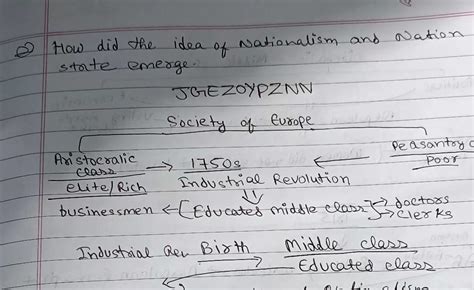 Q) How did the idea of Nationalism and Nation
state emerge.
JGEZOYPZNN
Society of Europe
Aristocralic class → 1750s ← Peasantry
elite/Rich Industrial Revolution Poor
businessmen ← [Educated middle class] → doctors
→ Clerks
Industrial Rev Birth → Middle class
Educated class